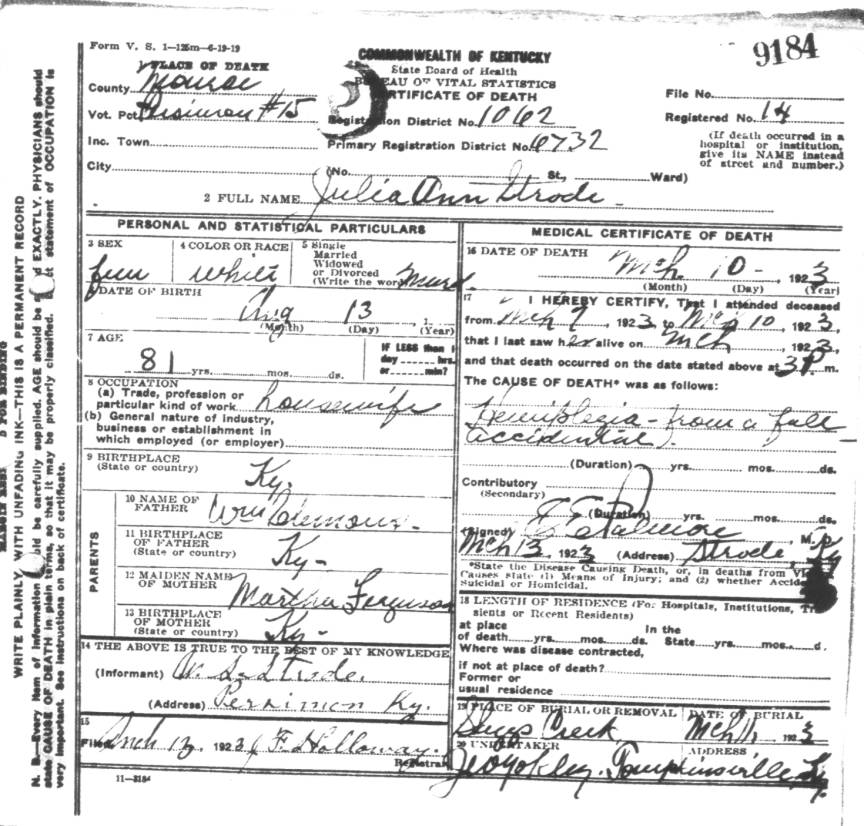 Form V. S. 1—125m—6-19-19
9184
PLACE OF DEATH
COMMONWEALTH OF KENTUCKY
State Board of Health
BUREAU OF VITAL STATISTICS
CERTIFICATE OF DEATH
County Monroe
Vot. Pct. Persimmon #15
Inc. Town
City
Registration District No. 1062
Primary Registration District No. 6732
File No.
Registered No. 14
(If death occurred in a
hospital or institution,
give its NAME instead
of street and number.)
(No. St., Ward)
2 FULL NAME Julia Ann Strode
PERSONAL AND STATISTICAL PARTICULARS
3 SEX fem
4 COLOR OR RACE white
5 Single
Married
Widowed
or Divorced
(Write the word)
DATE OF BIRTH
Aug 13 , 1
(Month) (Day) (Year)
7 AGE
81 yrs. mos. ds.
IF LESS than 1
day hrs.
or min?
8 OCCUPATION
(a) Trade, profession or
particular kind of work housewife
(b) General nature of industry,
business or establishment in
which employed (or employer)
9 BIRTHPLACE
(State or country) Ky.
PARENTS
10 NAME OF
FATHER Wm
11 BIRTHPLACE
OF FATHER
(State or country) Ky-
12 MAIDEN NAME
OF MOTHER Martha Ferguson
13 BIRTHPLACE
OF MOTHER
(State or country) Ky-
14 THE ABOVE IS TRUE TO THE BEST OF MY KNOWLEDGE
(Informant) W. S. Strode.
(Address) Persimon Ky.
15
Filed Mch 13, 1923 J F Holloway.
Registrar
11—3184
MEDICAL CERTIFICATE OF DEATH
16 DATE OF DEATH
Mch. 10 - , 1923
(Month) (Day) (Year)
17 I HEREBY CERTIFY, That I attended deceased
from Mch 7, 1923, to Mch 10, 1923,
that I last saw her alive on Mch , 1923,
and that death occurred on the date stated above at 3 P m.
The CAUSE OF DEATH* was as follows:
Hemiplegia - from a fall -
accidental).
(Duration) yrs. mos. ds.
Contributory
(Secondary)
(Duration) yrs. mos. ds.
(Signed) E E Palmore, M. D.
Mch 13, 1923 (Address) Strode, Ky
*State the Disease Causing Death, or, in deaths from
Causes state (1) Means of Injury; and (2) whether
Suicidal or Homicidal.
18 LENGTH OF RESIDENCE (For Hospitals, Institutions,
sients or Recent Residents)
at place In the
of death yrs. mos. ds. State yrs. mos. d.
Where was disease contracted,
if not at place of death?
Former or
usual residence
19 PLACE OF BURIAL OR REMOVAL DATE OF BURIAL
Creek Mch 11, 1923
20 UNDERTAKER ADDRESS
Geo Yokley. Tompkinsville Ky.
WRITE PLAINLY, WITH UNFADING INK—THIS IS A PERMANENT RECORD
N. B.—Every item of information should be carefully supplied. AGE should be EXACTLY. PHYSICIANS should
state CAUSE OF DEATH in plain terms, so that it may be properly classified. statement of OCCUPATION is
very important. See instructions on back of certificate.